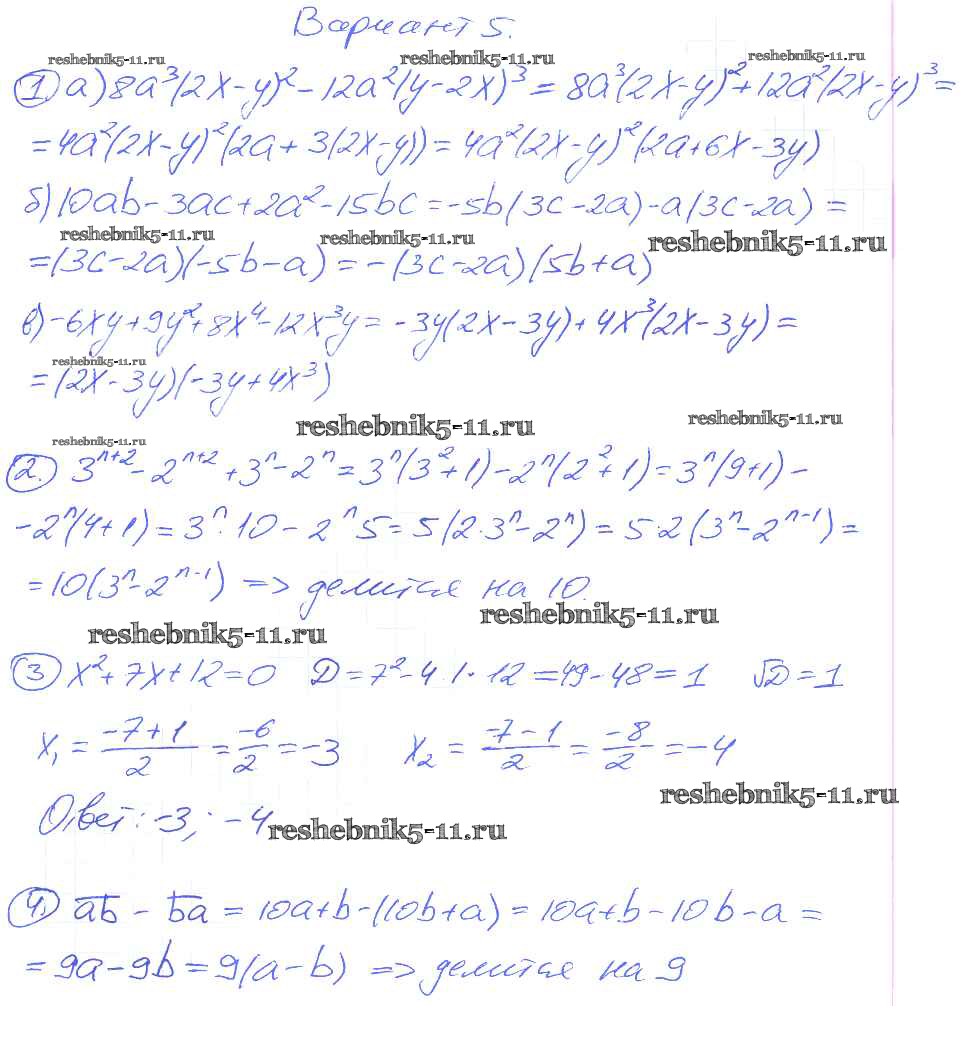 Вариант 5.
reshebnik5-11.ru reshebnik5-11.ru reshebnik5-11.ru
① а) 8a³(2x-y)² - 12a²(y-2x)³ = 8a³(2x-y)² + 12a²(2x-y)³ =
= 4a²(2x-y)²(2a + 3(2x-y)) = 4a²(2x-y)²(2a+6x-3y)
б) 10ab - 3ac + 2a² - 15bc = -5b(3c-2a) - a(3c-2a) =
reshebnik5-11.ru reshebnik5-11.ru reshebnik5-11.ru
= (3c-2a)(-5b-a) = -(3c-2a)(5b+a)
в) -6xy + 9y² + 8x⁴ - 12x³y = -3y(2x-3y) + 4x³(2x-3y) =
reshebnik5-11.ru
= (2x-3y)(-3y+4x³)
reshebnik5-11.ru reshebnik5-11.ru
reshebnik5-11.ru
②. 3ⁿ⁺² - 2ⁿ⁺² + 3ⁿ - 2ⁿ = 3ⁿ(3²+1) - 2ⁿ(2²+1) = 3ⁿ(9+1) -
-2ⁿ(4+1) = 3ⁿ·10 - 2ⁿ5 = 5(2·3ⁿ-2ⁿ) = 5·2(3ⁿ-2ⁿ⁻¹) =
= 10(3ⁿ-2ⁿ⁻¹) => делится на 10.
reshebnik5-11.ru reshebnik5-11.ru
③ x² + 7x + 12 = 0 D = 7² - 4·1·12 = 49 - 48 = 1 √D = 1
x₁ = (-7+1)/2 = -6/2 = -3 x₂ = (-7-1)/2 = -8/2 = -4
reshebnik5-11.ru
Ответ: -3; -4
reshebnik5-11.ru
④. a̅b̅ - b̅a̅ = 10a+b-(10b+a) = 10a+b-10b-a =
= 9a-9b = 9(a-b) => делится на 9